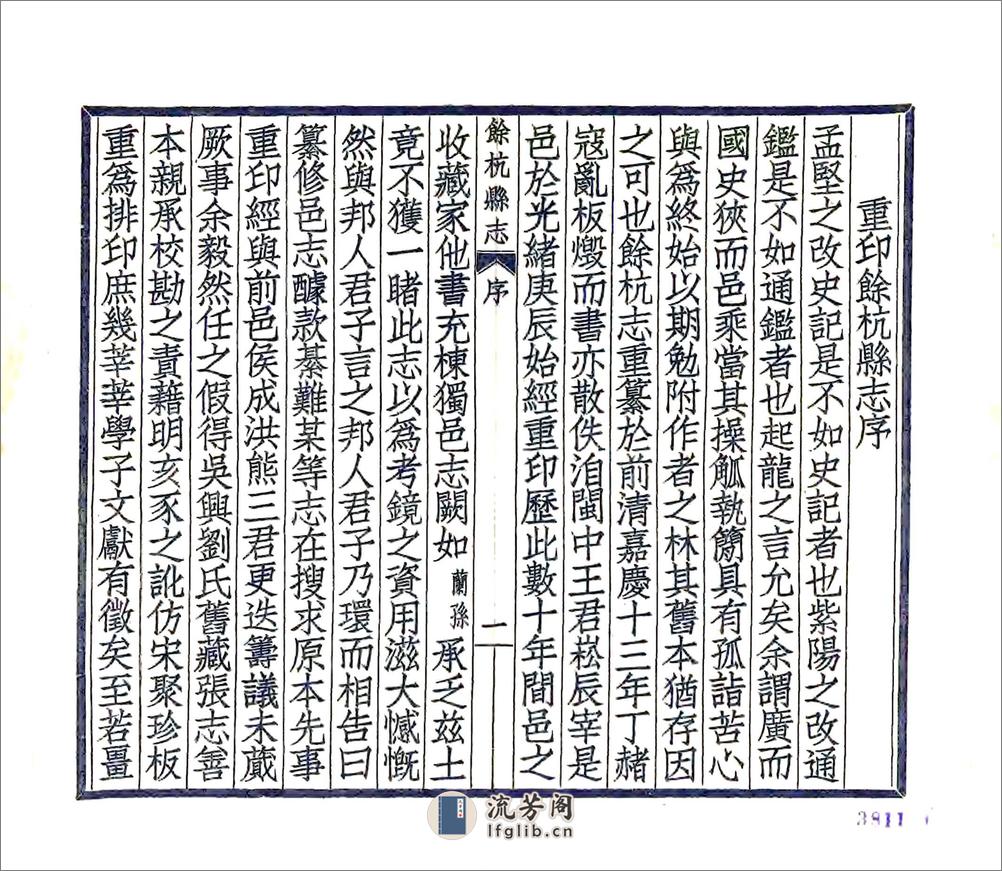 重印餘杭縣志序
孟堅之改史記是不如史記者也紫陽之改通
鑑是不如通鑑者也起龍之言允矣余謂廣而
國史狹而邑乘當其操觚執簡具有孤詣苦心
與爲終始以期勉附作者之林其舊本猶存因
之可也餘杭志重纂於前清嘉慶十三年丁赭
寇亂板燬而書亦散佚洎閩中王君崧辰宰是
邑於光緒庚辰始經重印歷此數十年間邑之
餘杭縣志 序 一
收藏家他書充棟獨邑志闕如蘭孫承乏兹土
竟不獲一睹此志以爲考鏡之資用滋大憾慨
然與邦人君子言之邦人君子乃環而相告曰
纂修邑志醵款綦難某等志在搜求原本先事
重印經與前邑侯成洪熊三君更迭籌議未蕆
厥事余毅然任之假得吳興劉氏舊藏張志善
本親承校勘之責藉明亥豕之訛仿宋聚珍板
重爲排印庶幾莘莘學子文獻有徵矣至若畺
流芳阁
lfglib.cn
3811